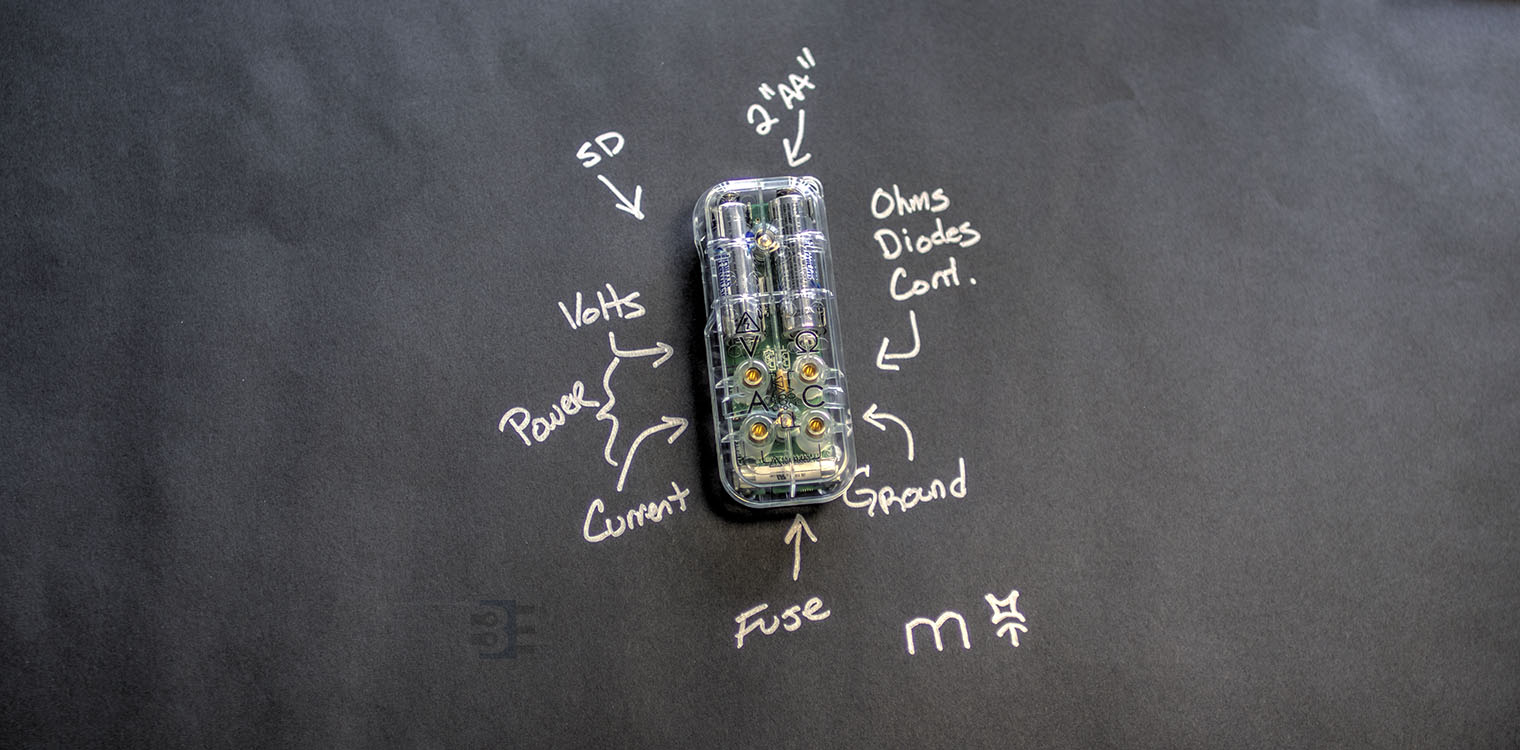 2 "AA"
SD
Ohms
Diodes
Cont.
Volts
Power
Current
Ground
Fuse
m
V
Ω
A
C